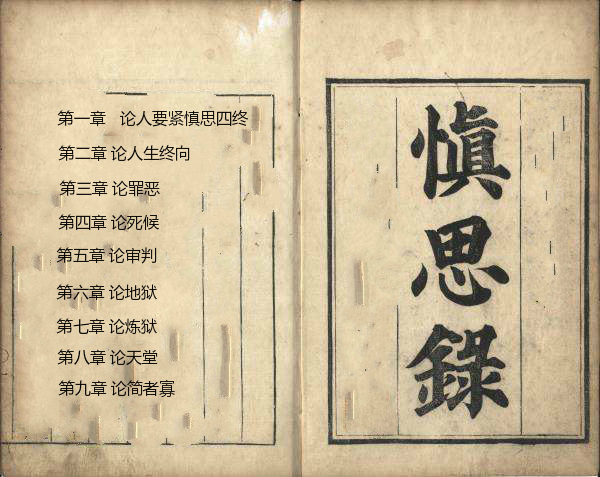 慎思錄
第一章 论人要紧慎思四终
第二章 论人生终向
第三章 论罪恶
第四章 论死候
第五章 论审判
第六章 论地狱
第七章 论炼狱
第八章 论天堂
第九章 论简者寡